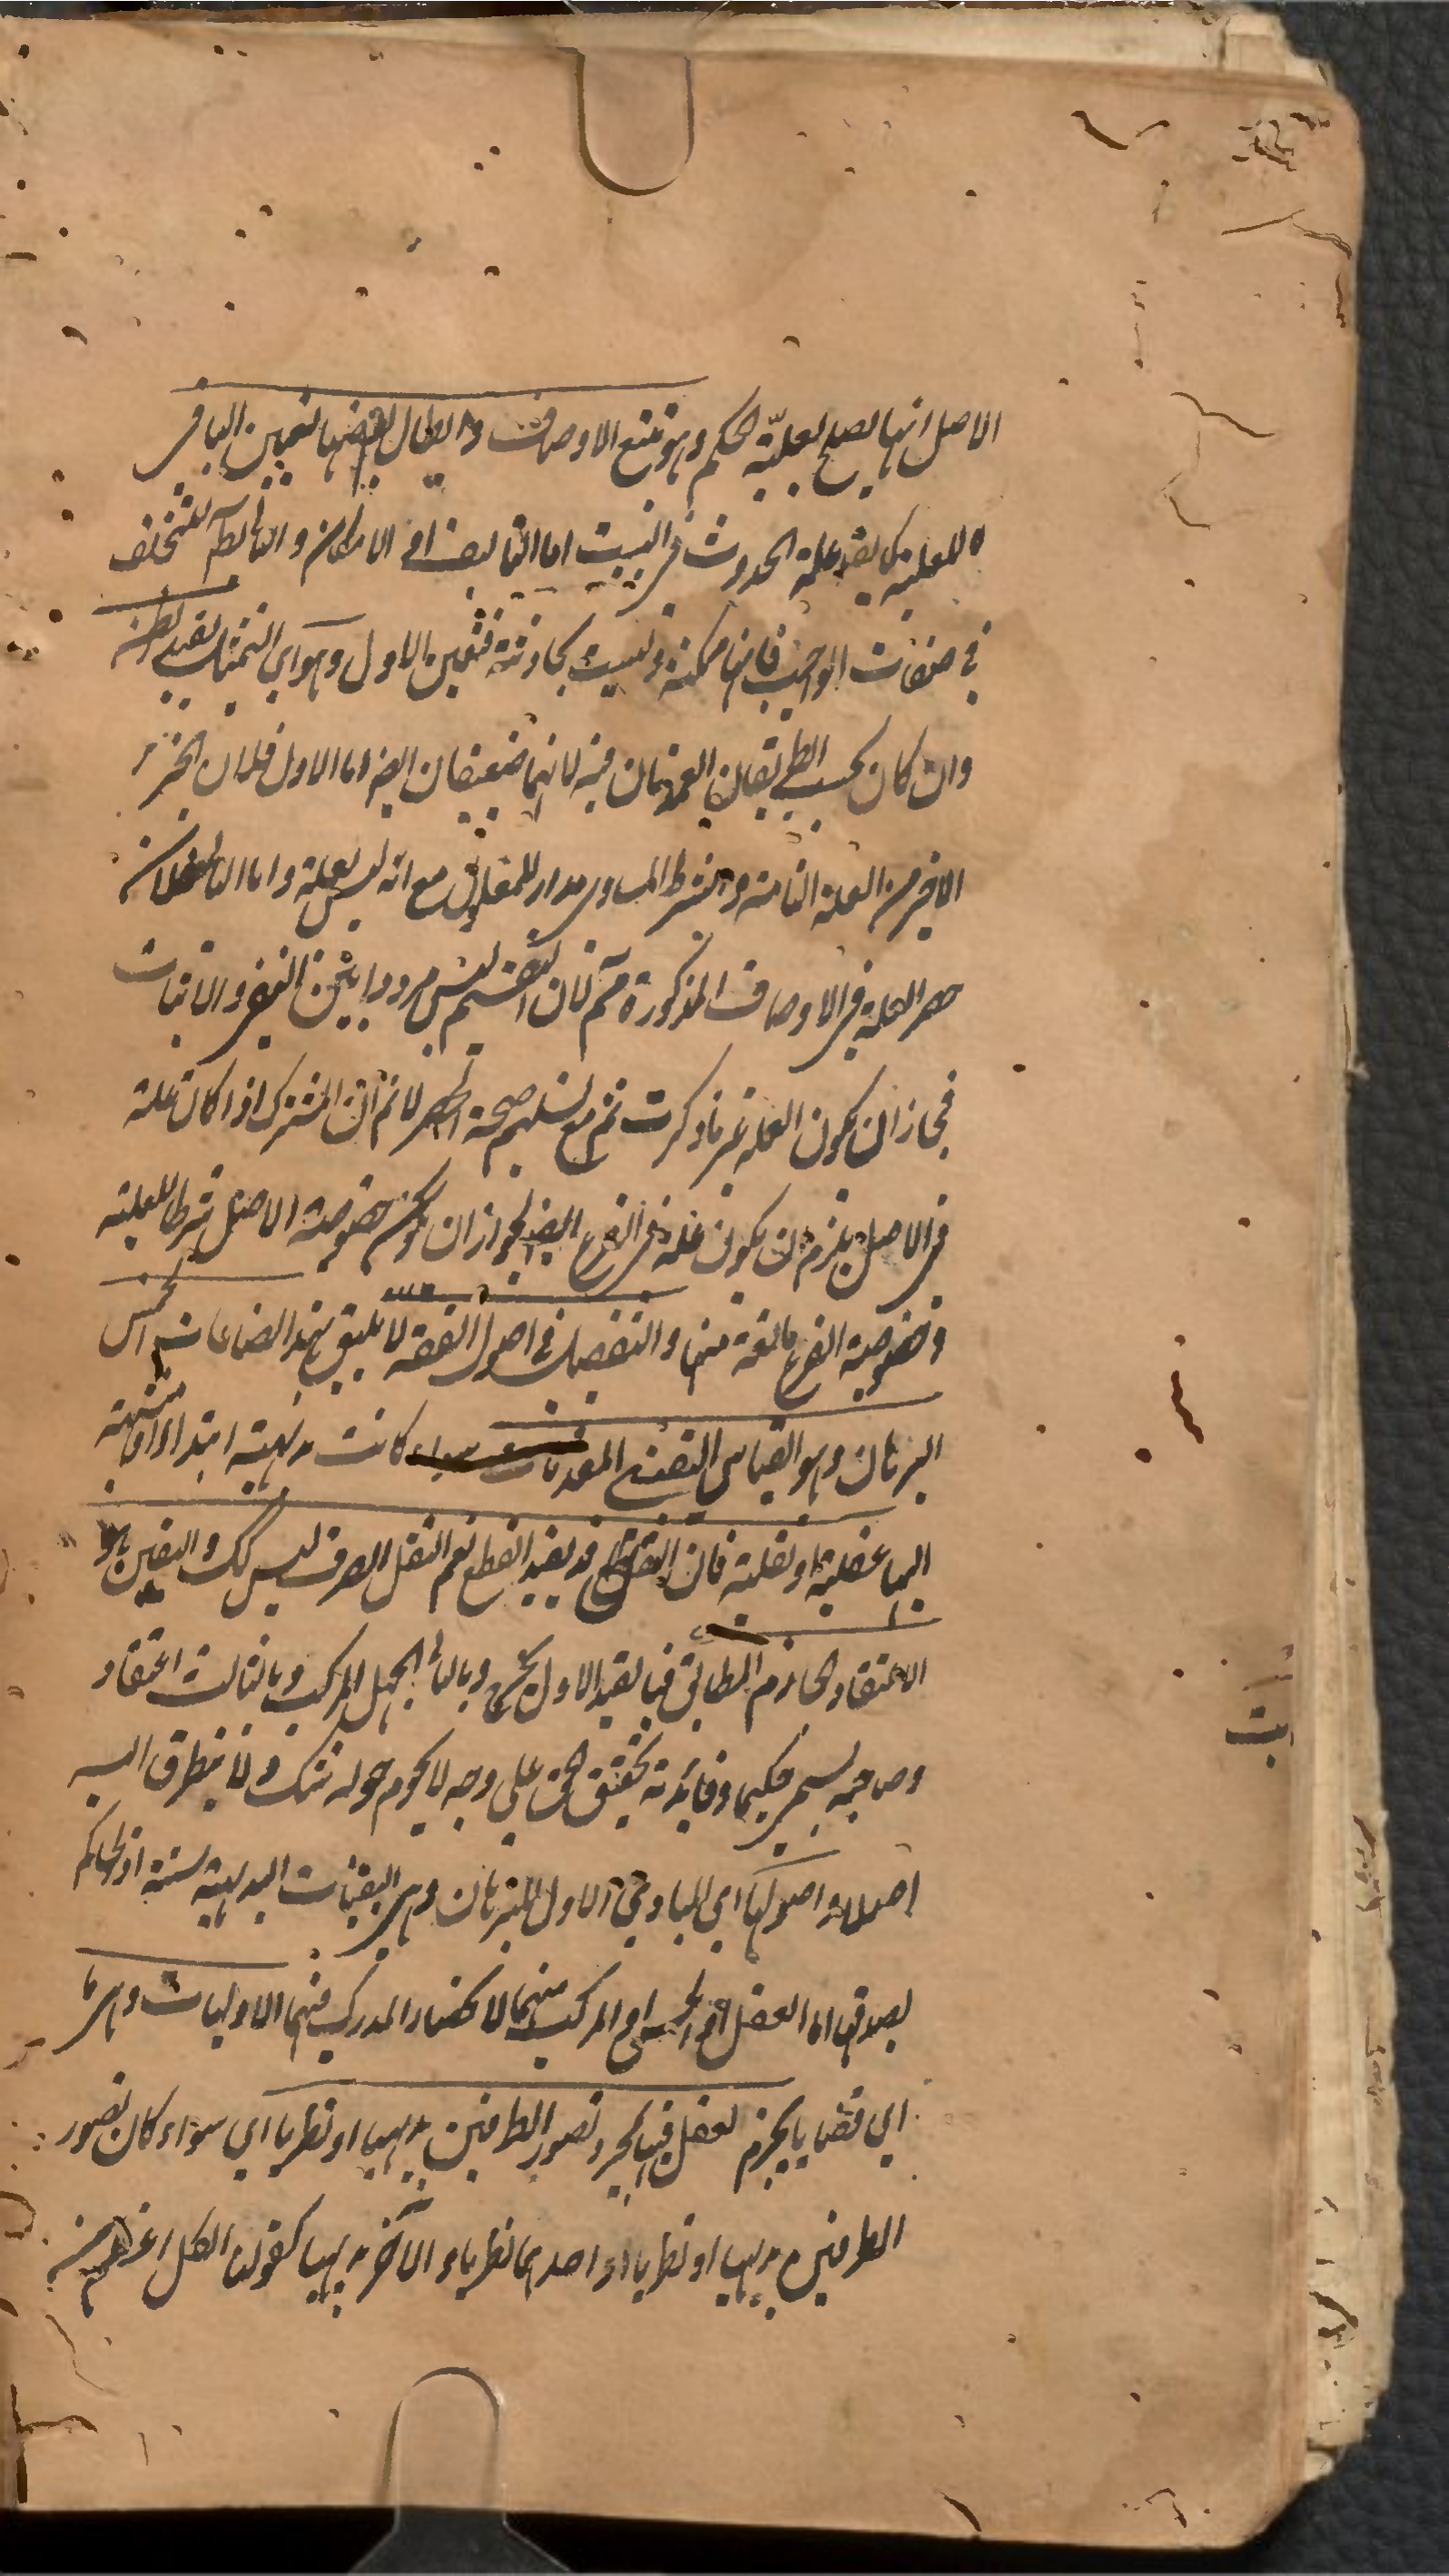 الاصل انها يصلح لعلية الحكم وهو تتبع الاوصاف وابطال بعضها لتعين الباقي
للعلية كما يقال علة الحدوث في البيت اما التاليف او الامكان والثاني بط للتخلف
في صفات الواجب فانها ممكنة وليست بحادثة فتعين الاول وهو اي التمثيل يفيد الظن
وان كان بحسب الطريقان العمدتان فيه لانهما ضعيفان ايضا اما الاول فلان الجزء
الاخير من العلة التامة والشرط المساوي مدار للمعلول مع انه ليس بعلة واما الثاني فلان
حصر العلة في الاوصاف المذكورة مم لان التقسيم ليس مرددا بين النفي والاثبات
فجاز ان يكون العلة غير ما ذكرت ثم مع تسليم صحة الحصر لا نم ان المشترك اذا كان علة
في الاصل يلزم ان يكون علة في الفرع ايضا لجواز ان يكون خصوصية الاصل شرطا للعلية
وخصوصية الفرع مانعة منها والتفصيل في اصول الفقه لا يليق بهذا الصناعات الخمس
البرهان وهو القياس اليقيني المقدمات سواء كانت بديهية ابتداء او منتهية
اليها عقلية او نقلية فان النقل قد يفيد القطع نعم النقل الصرف ليس كك واليقين هو
الاعتقاد الجازم المطابق الثابت فبالقيد الاول يخرج وبالثاني الجهل المركب وبالثالث اعتقاد
وصاحبه يسمى حكيما وفائدته تحقيق الحق على وجه لا يحوم حوله شك ولا يتطرق اليه
اصلا واصولها اي المبادي الاول للبرهان وهي اليقينيات البديهية ستة اذ الحاكم
بصدقها اما العقل او الحس او المركب منهما لانحصار المدرك فيها الاوليات وهي ما
اي قضايا يجزم العقل فيها بمجرد تصور الطرفين بديهيا او نظريا اي سواء كان تصور
الطرفين بديهيا او نظريا او احدهما نظريا والآخر بديهيا كقولنا الكل اعظم من